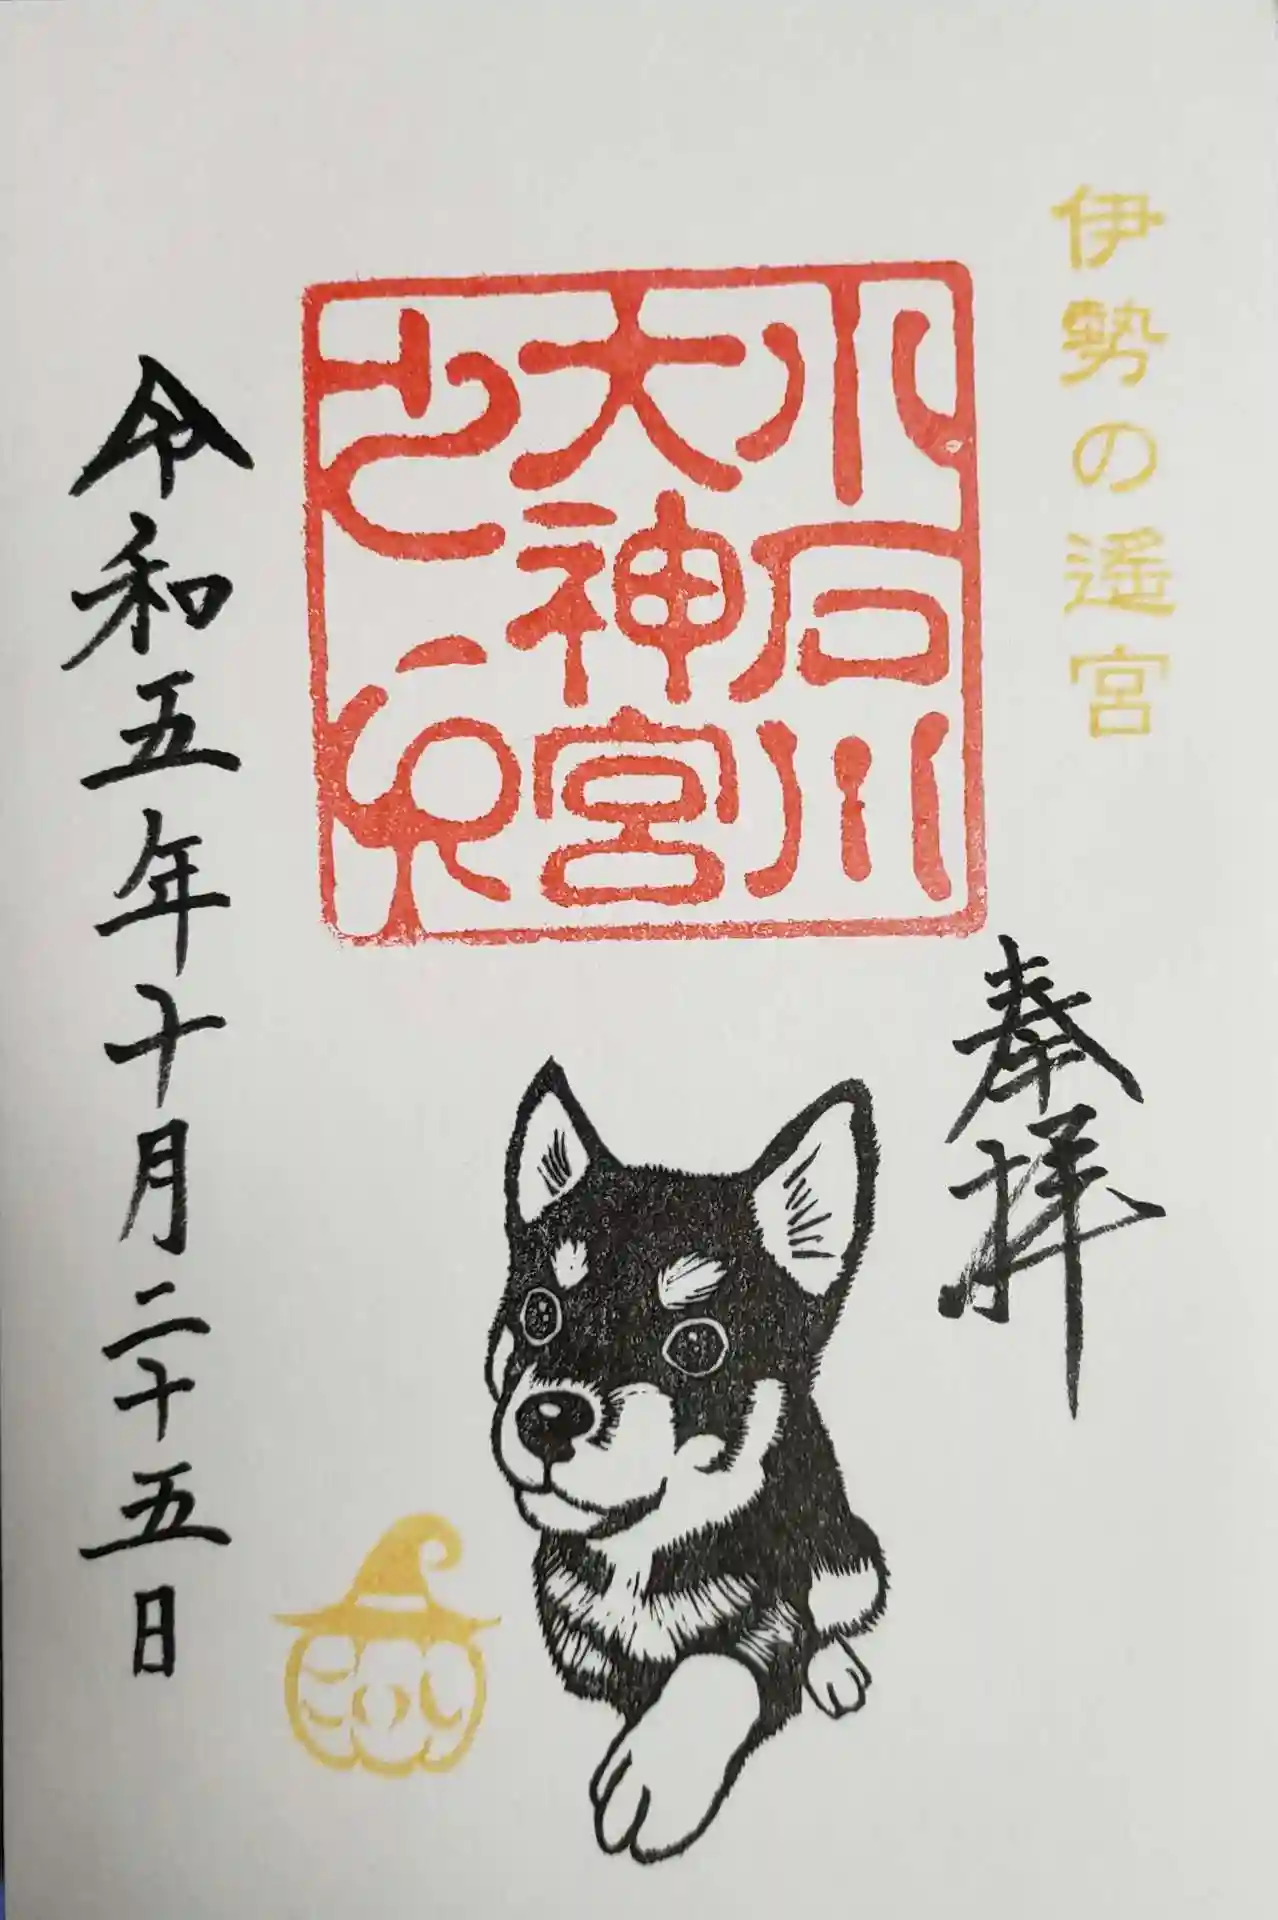 伊勢の遥宮
奉拝
小石川
大神宮
之印
令和五年十月二十五日